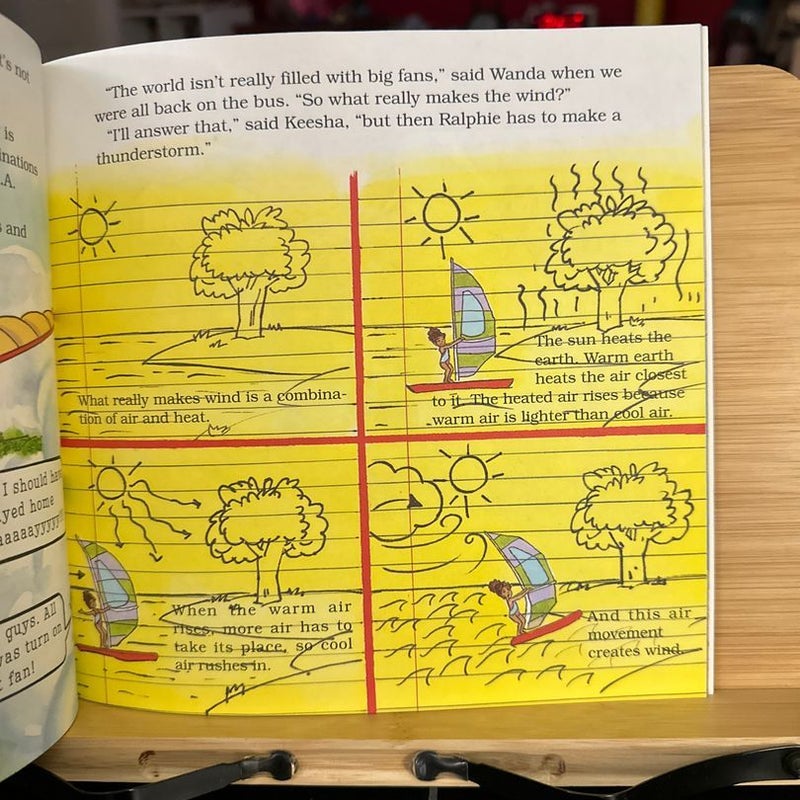 's not
is
inations
.A.
s and
I should ha
yed home
guys. All
was turn on
fan!
"The world isn't really filled with big fans," said Wanda when we
were all back on the bus. "So what really makes the wind?"
"I'll answer that," said Keesha, "but then Ralphie has to make a
thunderstorm."
What really makes wind is a combina-
tion of air and heat.
The sun heats the
earth. Warm earth
heats the air closest
to it. The heated air rises because
warm air is lighter than cool air.
When the warm air
rises, more air has to
take its place, so cool
air rushes in.
And this air
movement
creates wind.